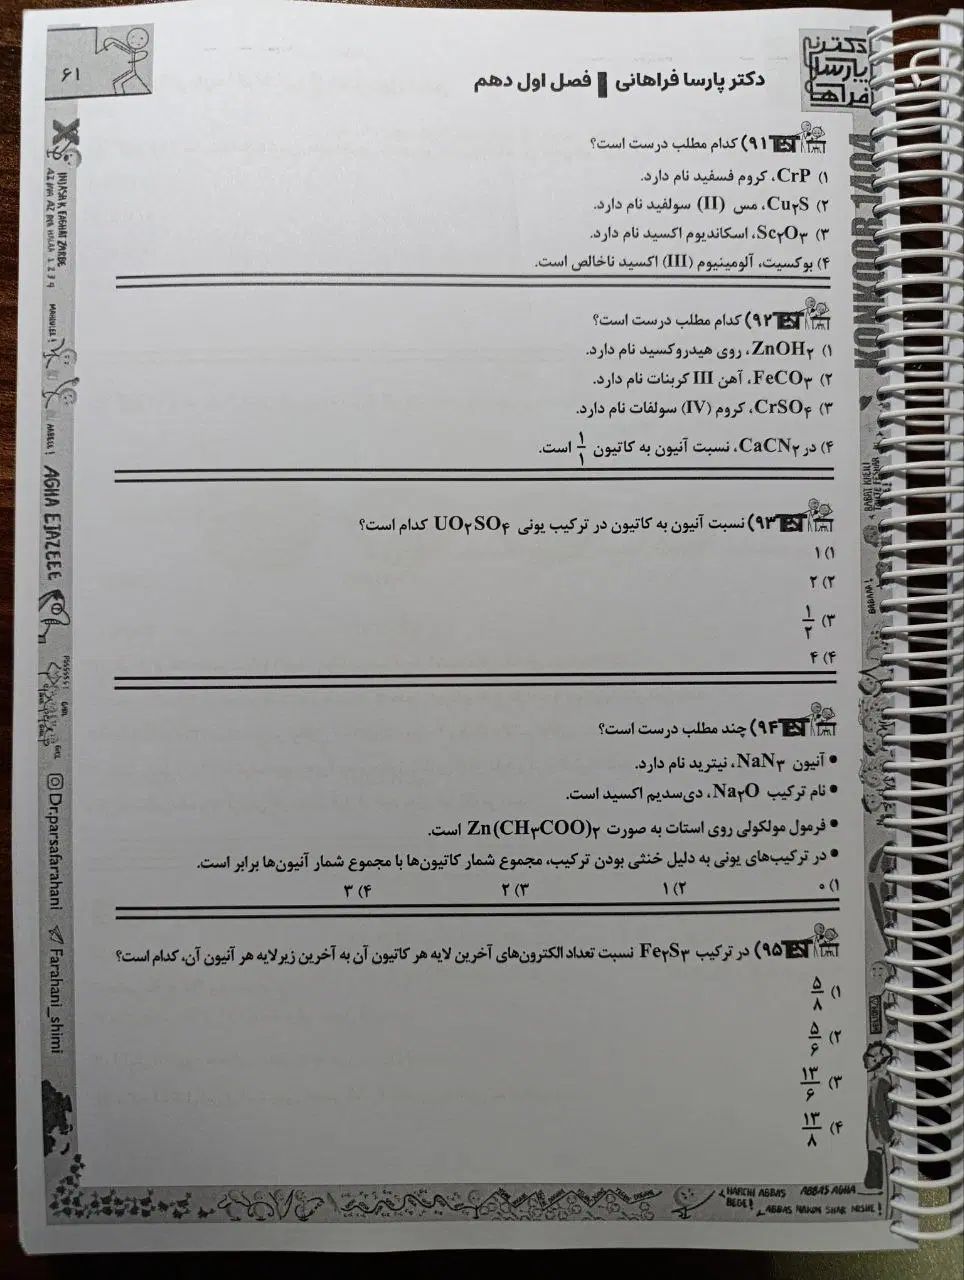 ۶۱
دکتر پارسا فراهانی | فصل اول دهم
دکتر
پارسا
فراهانی
KONKOOR 1404
تست ۹۱) کدام مطلب درست است؟
۱) CrP، کروم فسفید نام دارد.
۲) Cu۲S، مس (II) سولفید نام دارد.
۳) Sc۲O۳، اسکاندیوم اکسید نام دارد.
۴) بوکسیت، آلومینیوم (III) اکسید ناخالص است.
تست ۹۲) کدام مطلب درست است؟
۱) ZnOH۲، روی هیدروکسید نام دارد.
۲) FeCO۳، آهن III کربنات نام دارد.
۳) CrSO۴، کروم (IV) سولفات نام دارد.
۴) در CaCN۲، نسبت آنیون به کاتیون ۱/۱ است.
تست ۹۳) نسبت آنیون به کاتیون در ترکیب یونی UO۲SO۴ کدام است؟
۱) ۱
۲) ۲
۳) ۱/۲
۴) ۴
تست ۹۴) چند مطلب درست است؟
• آنیون NaN۳، نیترید نام دارد.
• نام ترکیب Na۲O، دی‌سدیم اکسید است.
• فرمول مولکولی روی استات به صورت Zn(CH۳COO)۲ است.
• در ترکیب‌های یونی به دلیل خنثی بودن ترکیب، مجموع شمار کاتیون‌ها با مجموع شمار آنیون‌ها برابر است.
۱) ۰ ۲) ۱ ۳) ۲ ۴) ۳
تست ۹۵) در ترکیب Fe۲S۳ نسبت تعداد الکترون‌های آخرین لایه هر کاتیون آن به آخرین زیرلایه هر آنیون آن، کدام است؟
۱) ۵/۸
۲) ۵/۶
۳) ۱۳/۶
۴) ۱۳/۸
AGHA EJAZEEE
Dr.parsafarahani
Farahani_shimi
HARCHI ABBAS BEGE!
ABBAS AGHA
ABBAS NAKON SHAR MISHE!